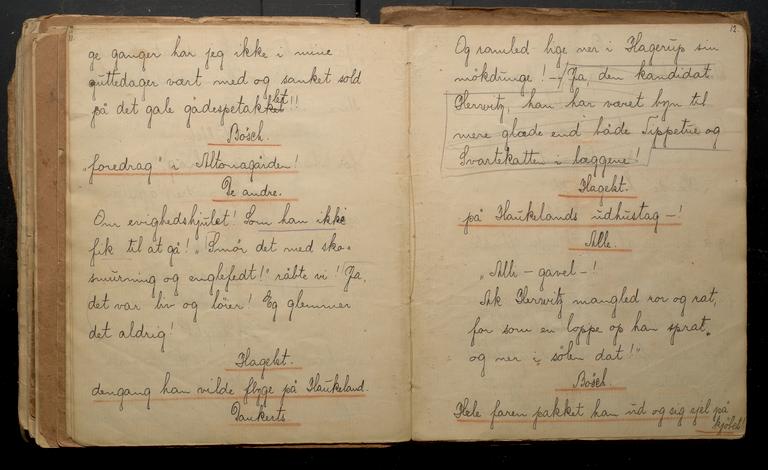 11.
ge ganger har jeg ikke i mine
guttedager vært med og sanket sold
på det gale gadespetakklet!!
Bösch.
"foredrag" i Altonagården!
De andre.
Om evighedshjulet! Som han ikke
fik til at gå! "Smør det med sko-
smurning og englefedt!" råbte vi! Ja,
det var liv og løier! Eg glemmer
det aldrig!
Hagelst.
dengang han vilde flyge på Haukeland.
Dankerts
12.
Og ramled lige ner i Hagerup sin
mökdunge! - Ja, den kandidat
Herwitz, han har været byn til
mere glæde end både Tippetue og
Svartekatten i læggene!
Hagelst.
på Haukelands udhustag -!
Alle.
"Alle - gavel -!
Ak Herwitz mangled ror og rat,
for som en loppe op han sprat,
og ner i sölen dat!"
Bösch.
Hele faren pakket han ud og sig sjel på
kjöbet!